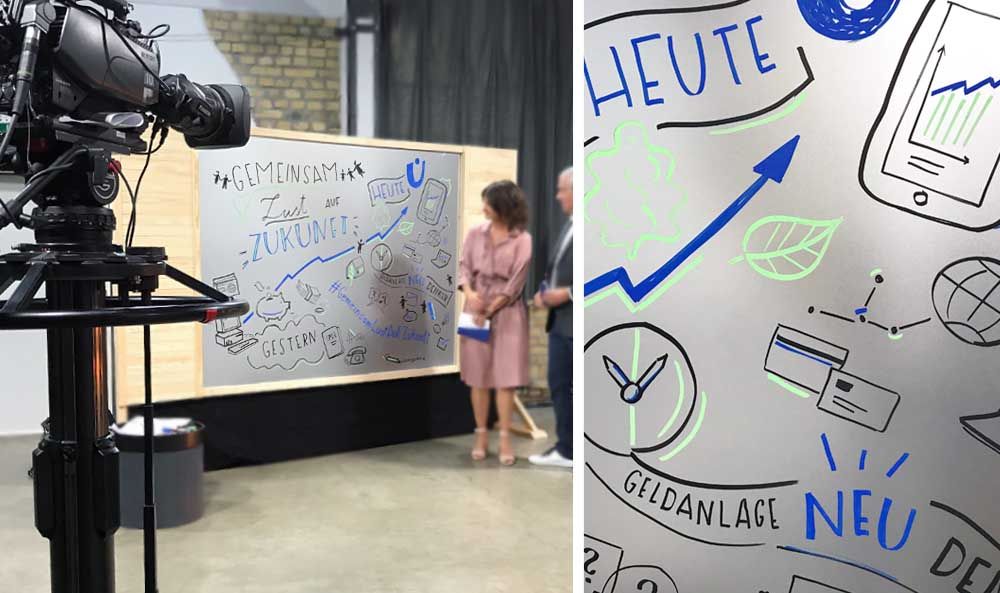 GEMEINSAM
Lust AUF
ZUKUNFT
HEUTE
Ü
NEU
GESTERN
HEUTE
GELDANLAGE
NEU
DE
?
?